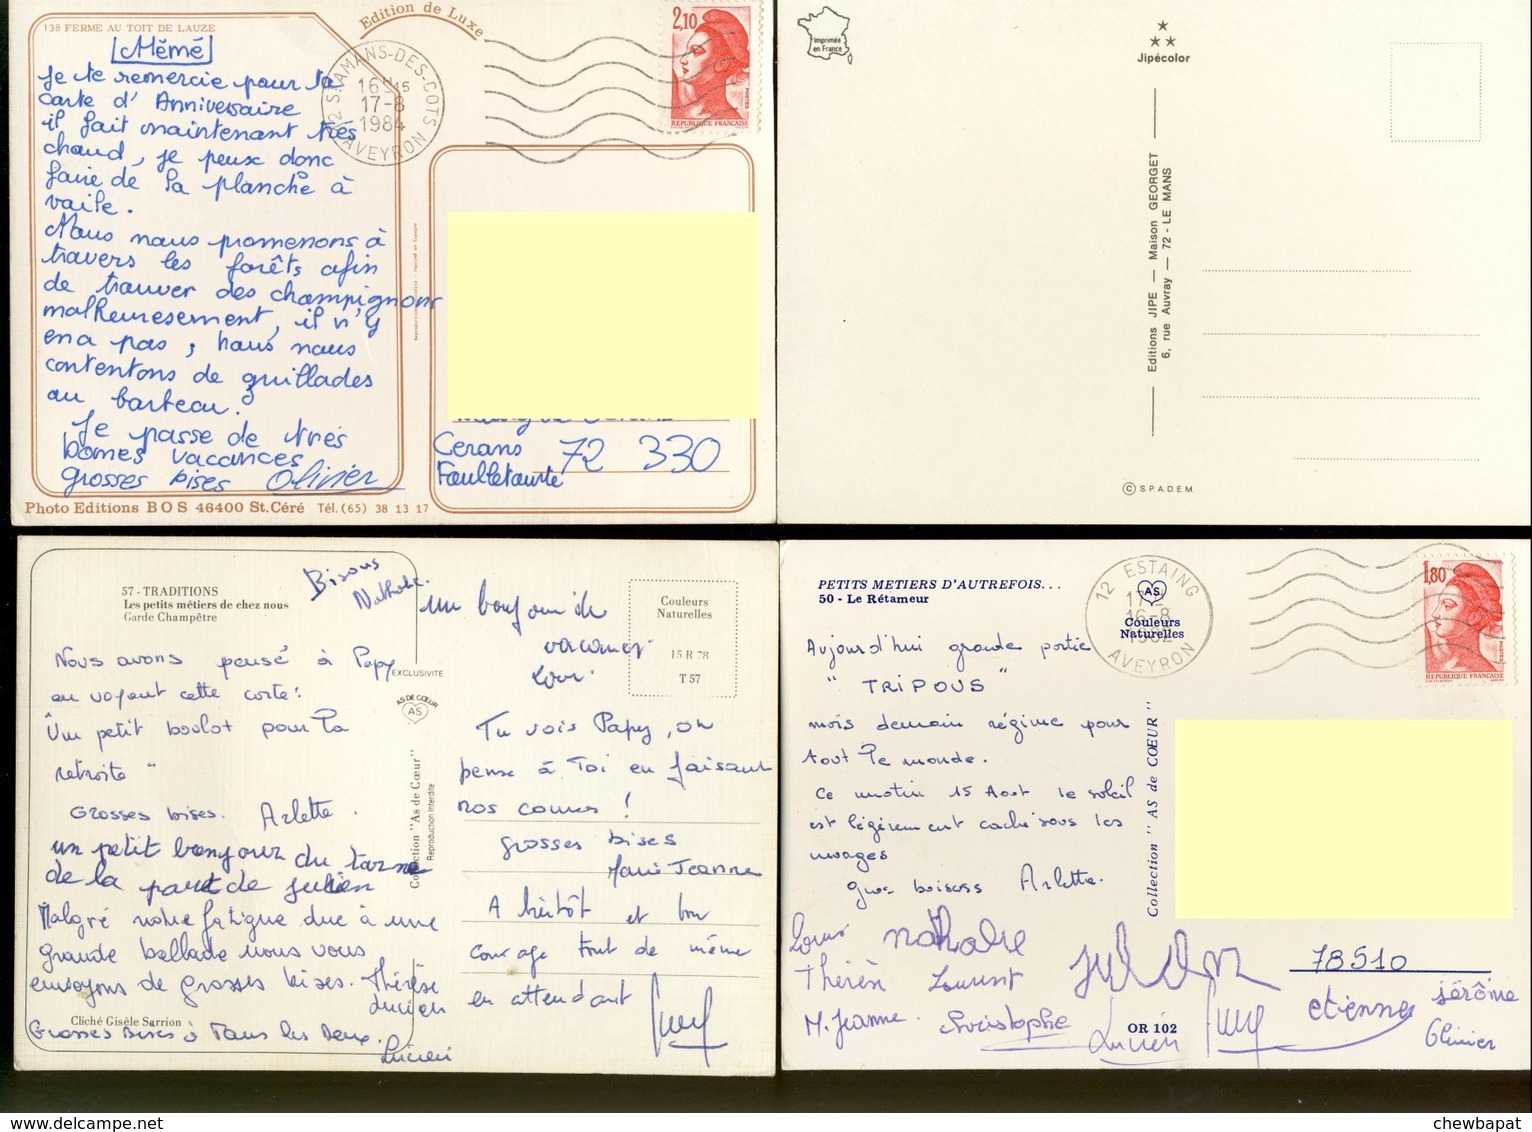 138 FERME AU TOIT DE LAUZE
Edition de Luxe
Mémé
Je te remercie pour ta
carte d'Anniversaire
il fait maintenant très
chaud, je peux donc
faire de la planche à
voile.
Nous nous promenons à
travers les forêts afin
de trouver des champignons
malheureusement, il n'y
en a pas, nous nous
contentons de grillades
au barbecu.
Je passe de très
bonnes vacances
grosses bises Olivier
12 ST AMANS-DES-COTS
16H15
17-8
1984
AVEYRON
2,10
POSTES
REPUBLIQUE FRANÇAISE
Cerans 72 330
Foulletourte
Photo Editions BOS 46400 St.Céré Tél.(65) 38 13 17
Imprimée
en France
Jipécolor
Editions JIPE — Maison GEORGET
6, rue Auvray — 72 - LE MANS
© S.P.A.D.E.M.
57 - TRADITIONS
Les petits métiers de chez nous
Garde Champêtre
Bisous
Nathalie.
Nous avons pensé à Papy
en voyant cette carte:
"Un petit boulot pour la
retraite"
Grosses bises. Arlette.
un petit bonjour du tarn
de la part de julien
Malgré notre fatigue due à une
grande ballade nous vous
envoyons de grosses bises. Thérèse
Lucien
Cliché Gisèle Sarrion
Grosses Bises à Tous les Deux.
Lucien
EXCLUSIVITE
AS DE CŒUR
AS
Collection "As de Cœur"
Reproduction interdite
un bonjour de
vacances
Couleurs
Naturelles
15 R 78
T 57
Tu vois Papy, on
pense à Toi en faisant
nos courses !
grosses bises
Marie Jeanne
A bientôt et bon
courage tout de même
en attendant
PETITS METIERS D'AUTREFOIS...
50 - Le Rétameur
AS
Couleurs
Naturelles
12 ESTAING
16-8
1982
AVEYRON
1,80
REPUBLIQUE FRANÇAISE
Aujourd'hui grande partie
"TRIPOUS"
mais demain régime pour
tout le monde.
Ce matin 15 Aout le soleil
est légèrement caché sous les
nuages
Gros bisous Arlette.
Collection "AS de CŒUR"
Louis Nathalie Julien
Thérèse Laurent
M. Jeanne. Christophe Lucien
OR 102
78510
etienne jérôme
Olivier
chewbapat